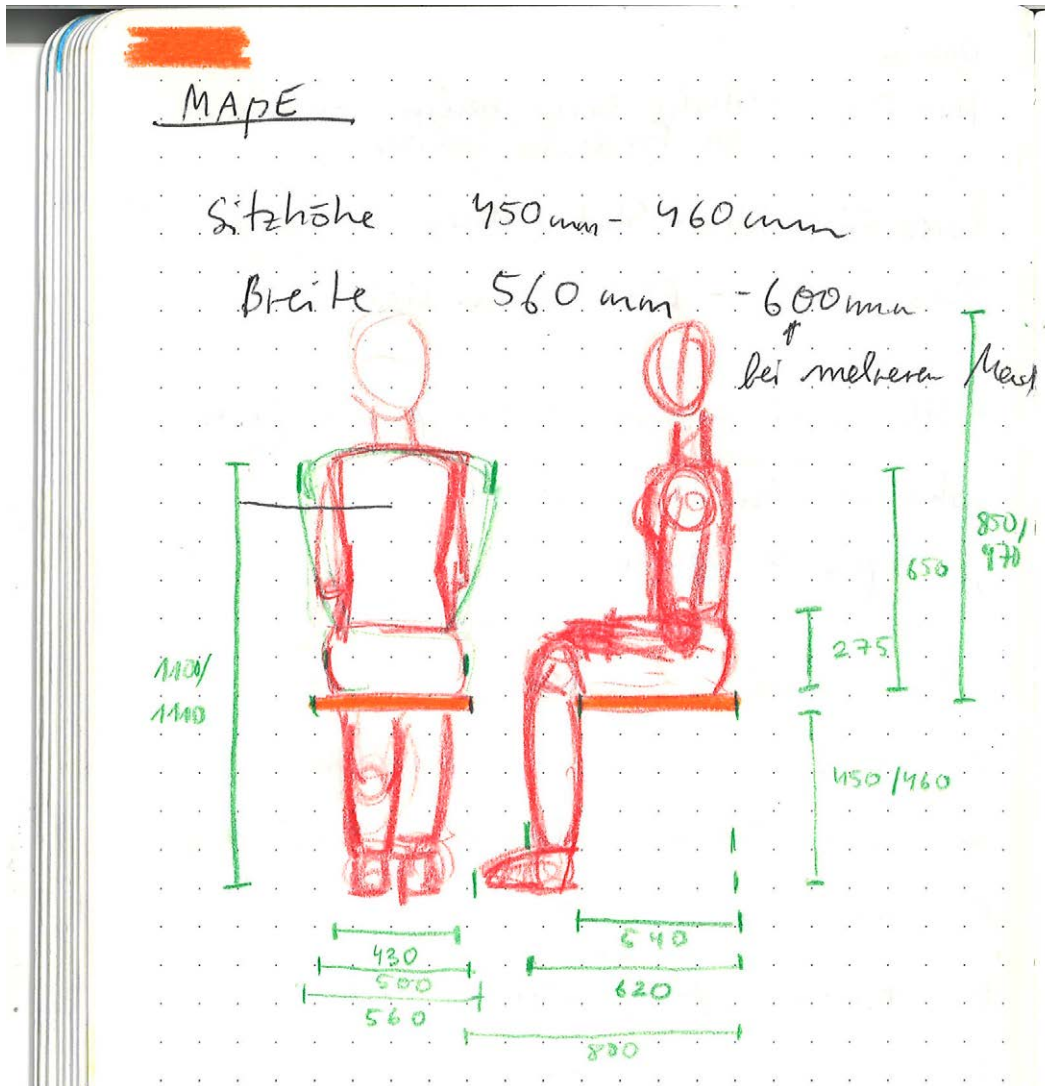 MAßE
Sitzhöhe 450mm - 460mm
Breite 560 mm - 600mm
bei mehreren
850/
970
650
275
1100/
1110
450/460
430
500
560
540
620
800